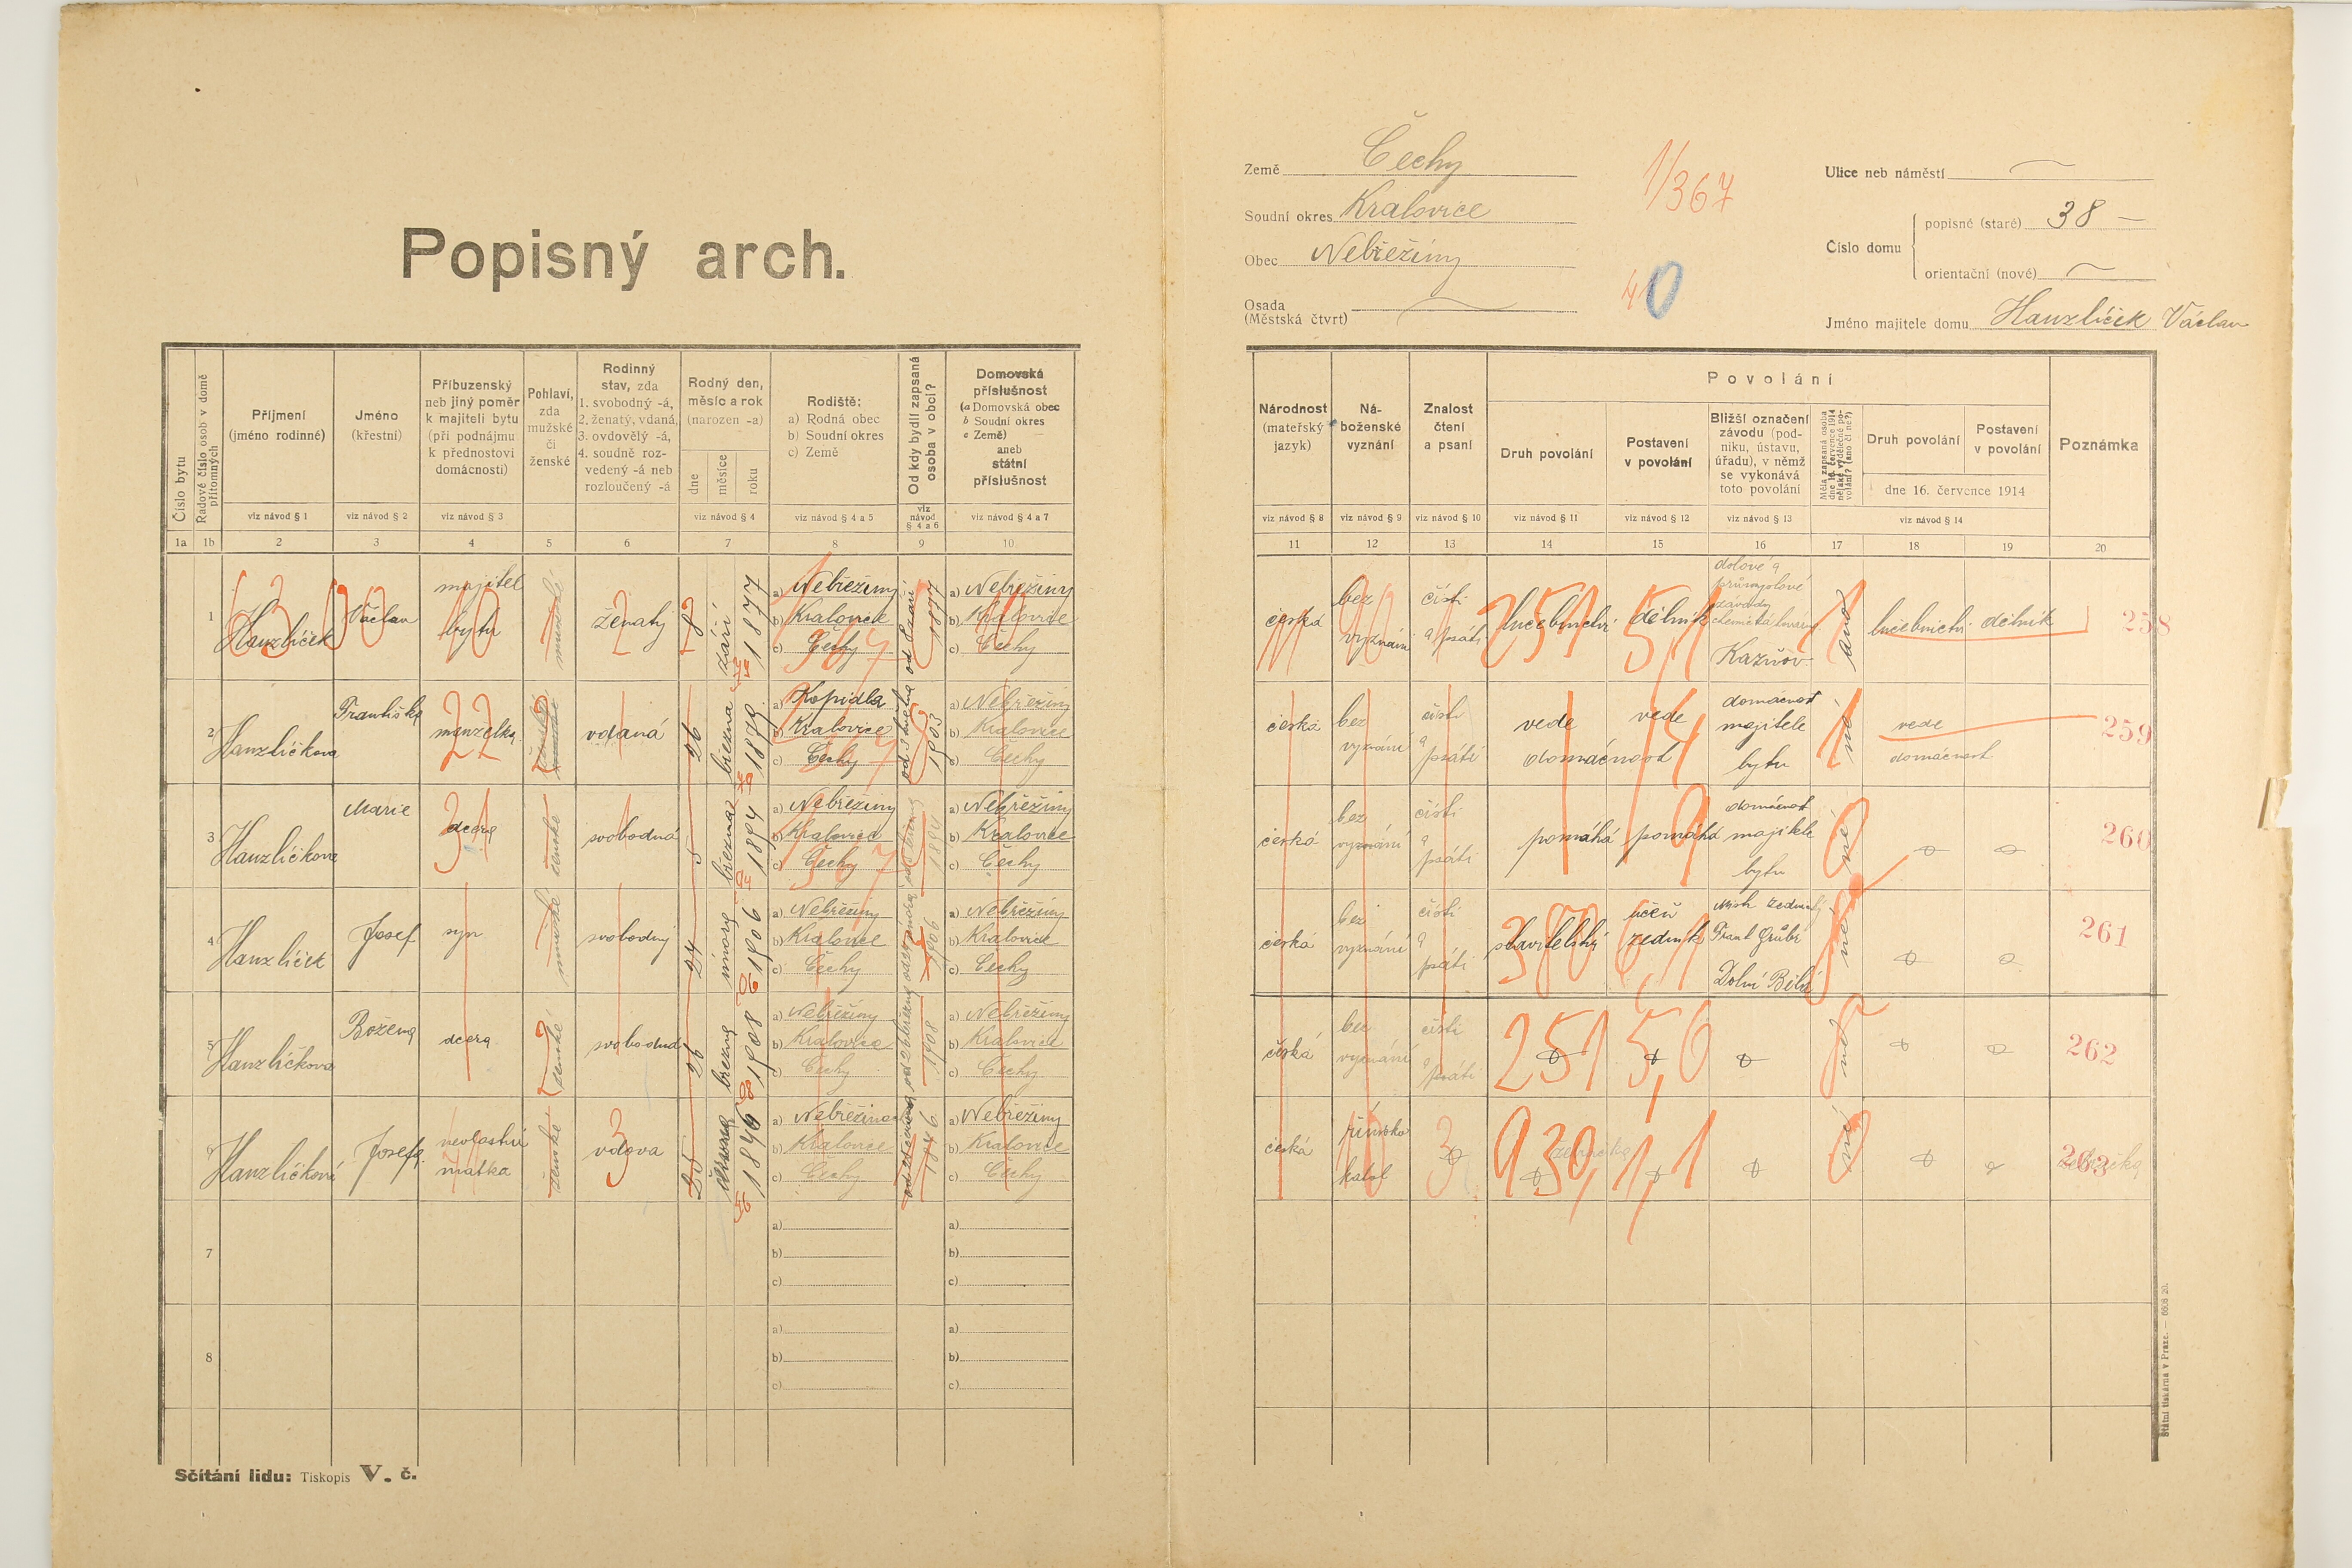 Popisný arch.
Země Čechy
Soudní okres Kralovice
Obec Nebřežiny
Osada
(Městská čtvrt)
1/367
40
Ulice neb náměstí
Číslo domu
popisné (staré) 38 —
orientační (nové)
Jméno majitele domu Hanzlíček Václav
Číslo bytu
Řadové číslo osob v domě přítomných
Příjmení
(jméno rodinné)
viz návod § 1
Jméno
(křestní)
viz návod § 2
Příbuzenský
neb jiný poměr
k majiteli bytu
(při podnájmu
k přednostovi
domácnosti)
viz návod § 3
Pohlaví,
zda
mužské
či
ženské
Rodinný
stav, zda
1. svobodný -á,
2. ženatý, vdaná,
3. ovdovělý -á,
4. soudně roz-
vedený -á neb
rozloučený -á
Rodný den,
měsíc a rok
(narozen -a)
dne
měsíce
roku
viz návod § 4
Rodiště:
a) Rodná obec
b) Soudní okres
c) Země
viz návod § 4 a 5
Od kdy bydlí zapsaná
osoba v obci?
viz
návod
§ 4 a 6
Domovská
příslušnost
(a Domovská obec
b Soudní okres
c Země)
aneb
státní
příslušnost
viz návod § 4 a 7
1a 1b 2 3 4 5 6 7 8 9 10
Národnost
(mateřský
jazyk)
viz návod § 8
Ná-
boženské
vyznání
viz návod § 9
Znalost
čtení
a psaní
viz návod § 10
Povolání
Druh povolání
viz návod § 11
Postavení
v povolání
viz návod § 12
Bližší označení
závodu (pod-
niku, ústavu,
úřadu), v němž
se vykonává
toto povolání
viz návod § 13
Měla zapsaná osoba
dne 16. července 1914
nějaké výdělečné po-
volání? (ano či ne?)
Druh povolání
Postavení
v povolání
dne 16. července 1914
viz návod § 14
Poznámka
11 12 13 14 15 16 17 18 19 20
1 Hanzlíček Václav majitel bytu mužské ženatý 8 září 1877
a) Nebřežiny
b) Kralovice
c) Čechy
1877
a) Nebřežiny
b) Kralovice
c) Čechy
česká bez vyznání čísti a psáti lučebnictví dělník
dolové a
průmyslové
závody
Kaznějov
ano lučebnictví dělník 258
2 Hanzlíčkova Františka manželka ženské vdaná 26 března 1879
a) Kopidla
b) Kralovice
c) Čechy
1903
a) Nebřežiny
b) Kralovice
c) Čechy
česká bez vyznání čísti a psáti vede vede domácnost
domácnost majitele bytu
ne vede domácnost 259
3 Hanzlíčkova Marie dcera ženské svobodná 5 března
a) Nebřežiny
b) Kralovice
c) Čechy
a) Nebřežiny
b) Kralovice
c) Čechy
česká bez vyznání čísti a psáti pomáhá pomáhá
domácnost majitele bytu
ne 260
4 Hanzlíček Josef syn mužské svobodný 24 února 1906
a) Nebřežiny
b) Kralovice
c) Čechy
1906
a) Nebřežiny
b) Kralovice
c) Čechy
česká bez vyznání čísti a psáti stavitelský učeň zedník
Dolní Bělá
ne 261
5 Hanzlíčkova Božena dcera ženské svobodná 26 března 1908
a) Nebřežiny
b) Kralovice
c) Čechy
od 26 března 1908
a) Nebřežiny
b) Kralovice
c) Čechy
česká bez vyznání čísti a psáti 251 5,6 ne 262
6 Hanzlíčková Josefa nevlastní matka ženské vdova 25 1846
a) Nebřežiny
b) Kralovice
c) Čechy
1846
a) Nebřežiny
b) Kralovice
c) Čechy
česká římsko katol 930, 1,1 ne 263
7
a)
b)
c)
a)
b)
c)
8
a)
b)
c)
a)
b)
c)
Sčítání lidu: Tiskopis V. č.
Státní tiskárna v Praze. — 6606 20.